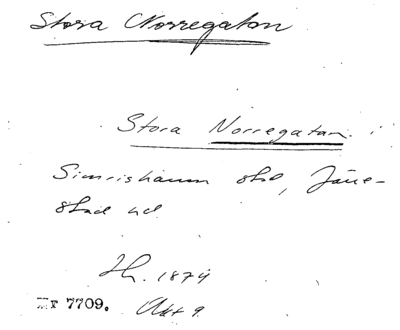 Stora Norregatan
Stora Norregatan i
Simrishamn stad, Järre-
stad hd
Th. 1874
Nr 7709. Akt 9.